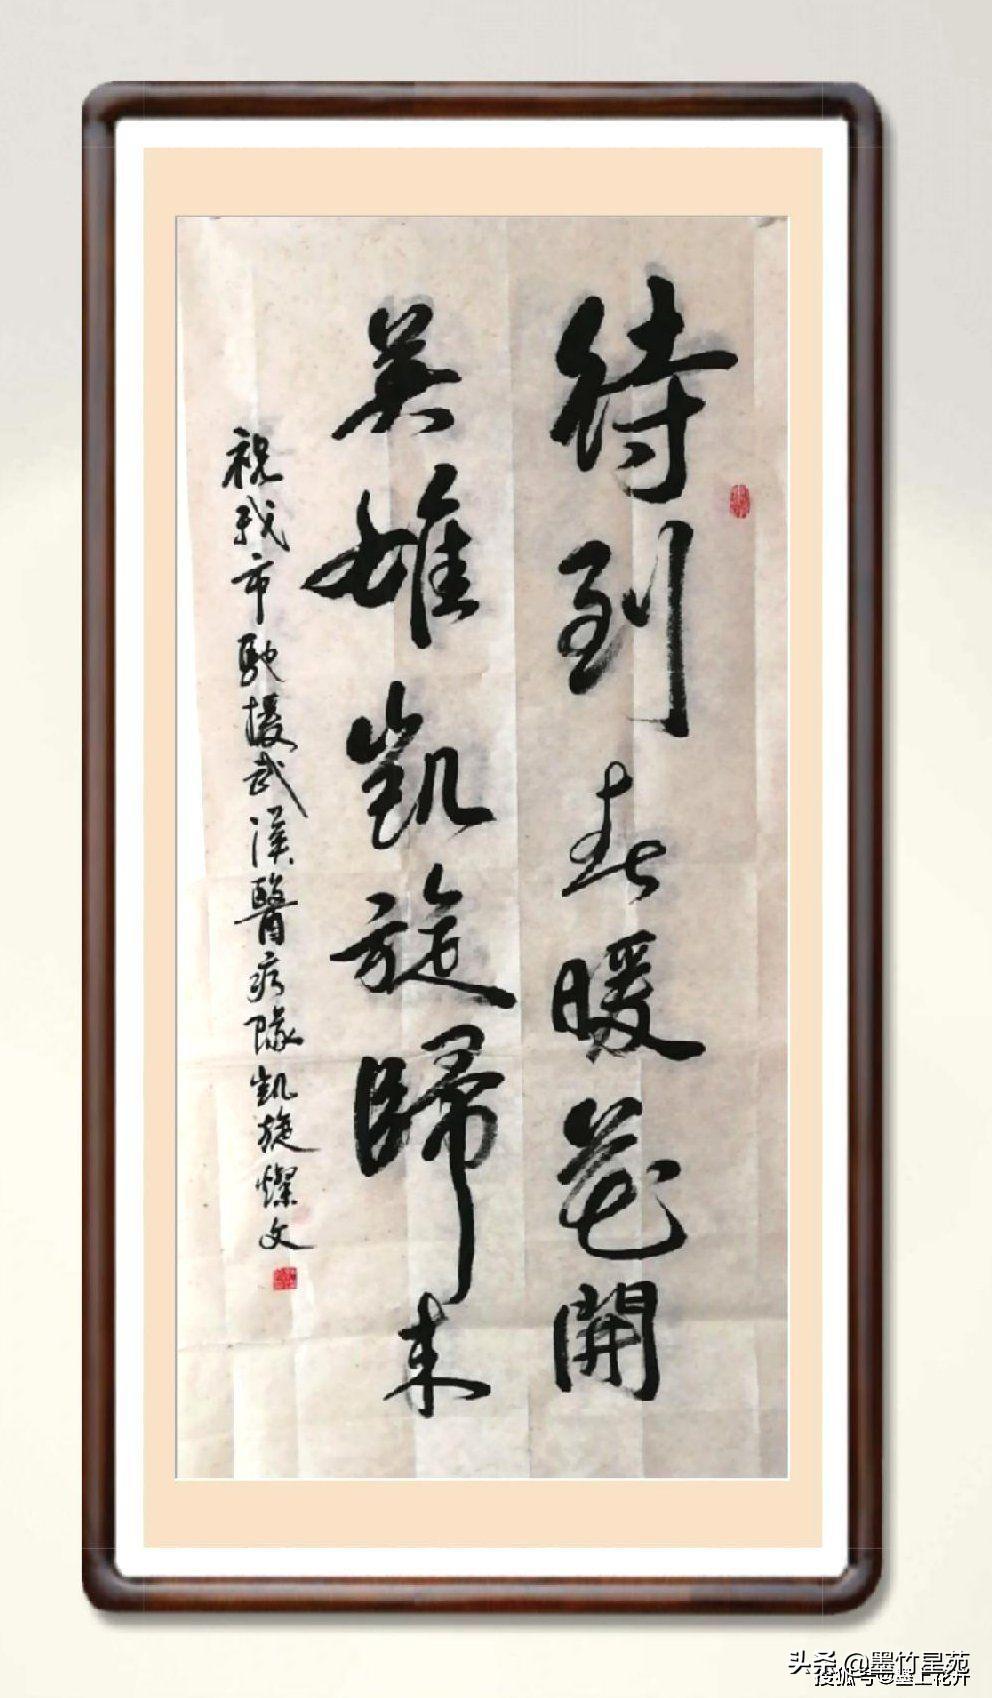 待到春暖花開
英雄凱旋歸来
祝我市馳援武漢醫疗隊凱旋燦文
头条 @墨竹星苑
搜狐号@墨上花开